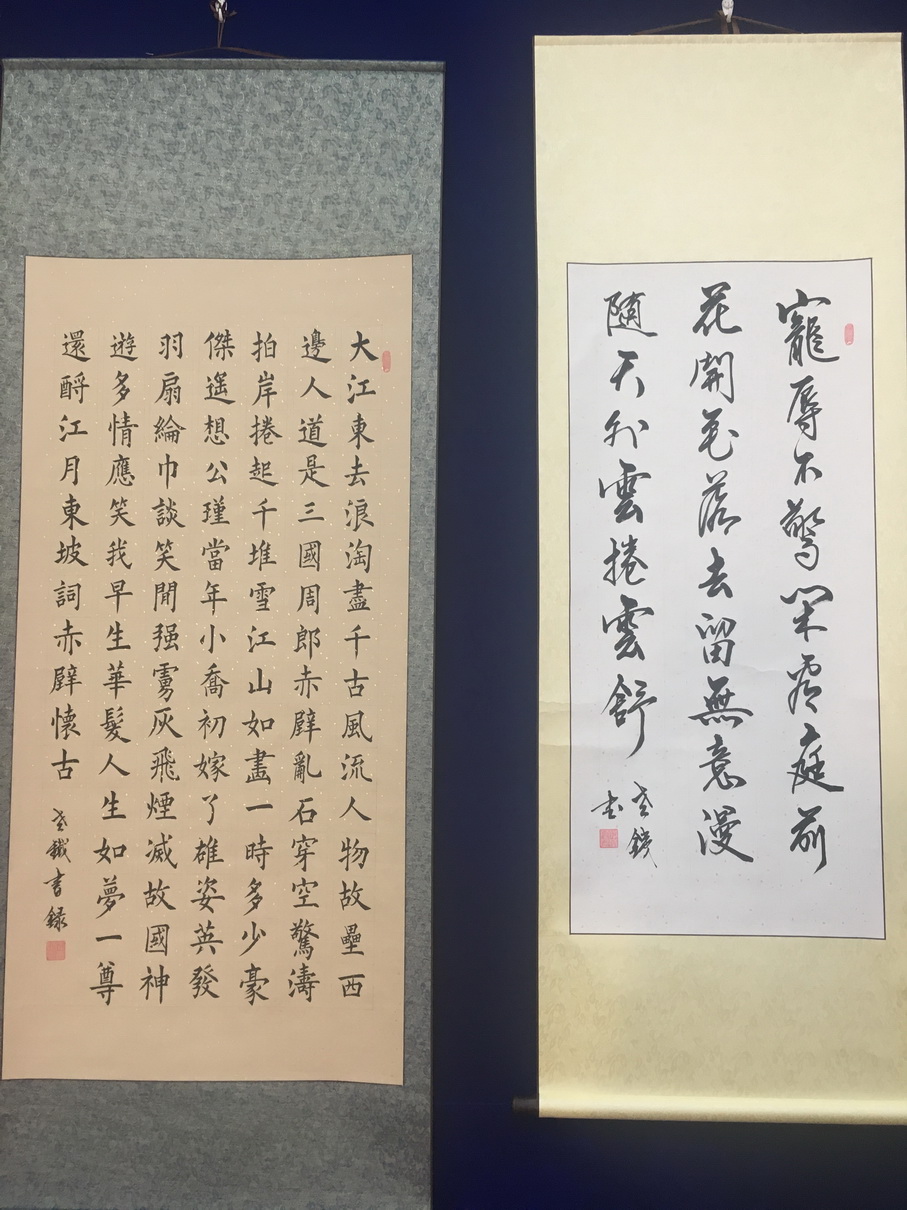 寵辱不驚閑看庭前
花開花落去留無意漫
隨天外雲捲雲舒
老鐵
书
大江東去浪淘盡千古風流人物故壘西
邊人道是三國周郎赤壁亂石穿空驚濤
拍岸捲起千堆雪江山如畫一時多少豪
傑遥想公瑾當年小喬初嫁了雄姿英發
羽扇綸巾談笑間强虜灰飛煙滅故國神
遊多情應笑我早生華髮人生如夢一尊
還酹江月東坡詞赤壁懷古
老鐵書録